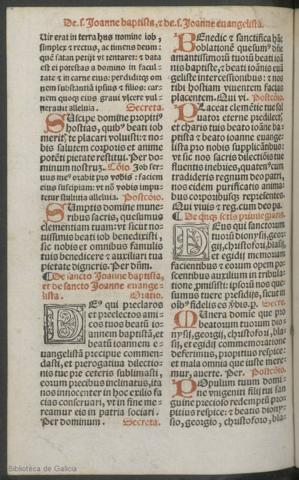 De.s. Joanne baptista, & de.s. Joanne euangelista.
Uir erat in terra hus nomine iob,
simplex & rectus, ac timens deum:
quẽ satan petijt vt tentaret: & data
est ei potestas a domino in facul-
tate & in carne eius: perdiditq; om
nem substantiã ipsius & filios: car-
nem quoq; eius graui vlcere vul
nerauit alleluia. Secreta.
SUscipe domine propitiꝰ
hostias, quibꝰ beatꝰ iob
merit̃ te placari voluisti: & no-
bis salutem corporis et anime
potẽti pietate restitui. Per do-
minum nostrũ. Cõio. Job ser-
uus meꝰ orabit pro vobis: faciem
eius suscipiam: vt nõ vobis impu-
tetur stulticia alleluia. Postcõio.
SUmptis domine mune-
ribus sacris, quesumus
clementiam tuam: vt sicut no-
uissimis beati iob benedixisti,
sic nobis et omnibus famulis
tuis benedicere & auxiliari tua
pietate digneris. Per dñm.
¶ De sancto Joanne baptista,
et de sancto Joanne euange-
lista. Oratio.
DEꝰ qui preclaros
et preelectos ami-
cos tuos beatũ io-
annem baptistã, et
beatũ ioannem e-
uangelistã precipue commen-
dasti, et prerogatiua dilectio-
nis tue pre ceteris sublimasti,
eorum precibus inclinatus, ita
nos innocenter in hoc exilio fa
cias conseruari, vt in fine me-
reamur eis in patria sociari.
Per dominum. Secreta.
BEnedic & sanctifica hãc
oblationẽ quesumꝰ dñe
amantissimorũ tuorũ beati ioã
nis baptiste, & beati ioãnis euã
geliste intercessionibus: & no-
tibi hostiam viuentem facias
placentem. Qui vi. Postcõio.
PLaceat clemẽtie tue sal
uator eterne predilectꝰ,
et charis tuis beato ioãne ba-
ptista & beato ioanne euange-
lista pro nobis supplicãtibus:
vt sic nos sacris dilectiõis tue
fluentis inebries, quatenꝰ cum
tradideris regnum deo patri,
nos eidem purificatis animo
bus corporibus vestibulatos.
Qui viuis & reg. cum deo pa.
¶ De qnq; sctis priuilegiatis.
DEus qui sanctorum
tuorũ dionysij, ge-
orgij, christofori, blasij,
et egidij memoriam
facientibus & eorum opem po-
scentibus auxilium in tribula-
tione promisisti: ipsorũ nos que
sumus tuere presidijs, sicut in
oĩbꝰ fidelis es vbiq;. p. Secre.
MUnera domine que pro
beatorum tuorum dio-
nysij, georgij, christofori, blasij,
et egidij commemoratione
deferimus, propitius respice:
et mala omnia que iuste mere-
mur, auerte. Per. Postcõio.
POpulum tuum domi-
ne vnigeniti filij tui san
guine precioso redemptũ pro-
pitius respice: & beatis diony-
sio, georgio, christoforo, blasio
Biblioteca de Galicia